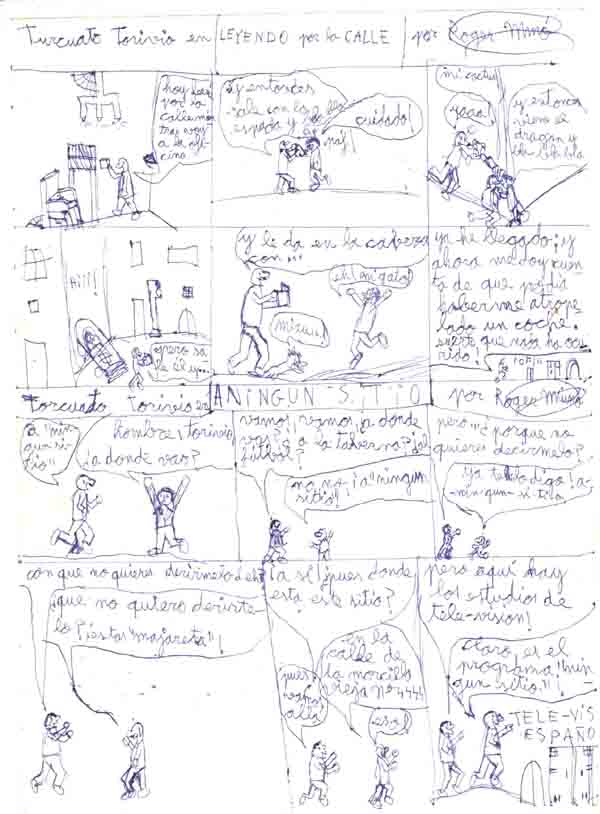 Turcuato Torivio en LEYENDO por la CALLE por Roger Mimó
hoy leere
por la
calle mien
tras voy
a la ofi
cina
¡y entonces
sale con la
espada y
cuidado!
¡yaaa!
y entonces
viene el
dragon y
bla bla bla
Aiii!
pero sa
le el
y li da en la cabeza
con...
eh! mi gato!
mizu
ya he llegado; y
ahora me doy cuen
ta de que podia
haberme atrope
llado un coche.
suerte que no ha ocu
rrido!
Torcuato Torivio en A NINGUN SITIO por Roger Mimó
a "nin
gun si
tio"
hombre, torivio
¿a donde vas?
vamos, vamos, ¿a donde
vas? ¿a la taberna? ¿al
futbol?
no no ¡a "ningun
sitio"!
pero... ¿porque no
quieres decirmelo?
ya te lo digo! a-
ningun-si-tio
con que no quieres decirmelo
¡que no quiero decirte-
lo? ¡estas "majareta"!
¡a si! pues donde
esta este sitio?
en la
calle de
la morcilla
vieja Nº 4444
pues
vamos
alla
eso!
pero aqui hay
los estudios de
tele-vision!
claro, es el
programa "nin
gun sitio"!
TELE-VIS
ESPAÑO